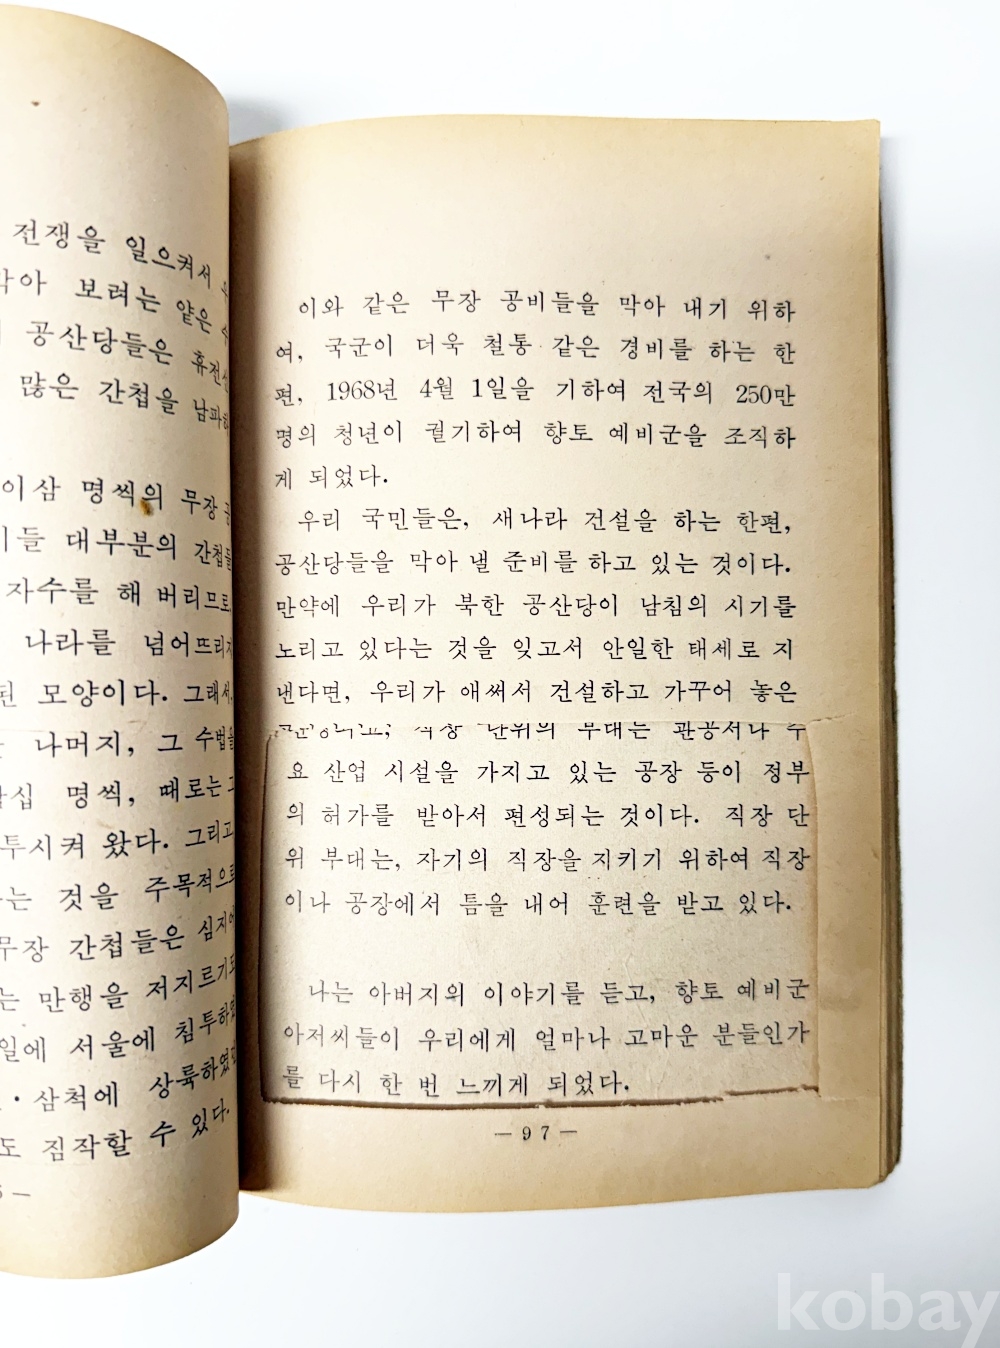 전쟁을 일으켜서
보려는 얕은
공산당들은
많은 간첩을
이삼 명씩의 무장
대부분의 간첩들
자수를 해 버리므로
나라를 넘어뜨리
모양이다. 그래서,
나머지, 그 수법을
명씩, 때로는
왔다. 그리고
것을 주목적으로
무장 간첩들은 심지어
만행을 저지르기도
서울에 침투하
삼척에 상륙하였
짐작할 수 있다.
이와 같은 무장 공비들을 막아 내기 위하
여, 국군이 더욱 철통 같은 경비를 하는 한
편, 1968년 4월 1일을 기하여 전국의 250만
명의 청년이 궐기하여 향토 예비군을 조직하
게 되었다.
우리 국민들은, 새나라 건설을 하는 한편,
공산당들을 막아 낼 준비를 하고 있는 것이다.
만약에 우리가 북한 공산당이 남침의 시기를
노리고 있다는 것을 잊고서 안일한 태세로 지
낸다면, 우리가 애써서 건설하고 가꾸어 놓은
직장 단위의 부대는 관공서나 주
요 산업 시설을 가지고 있는 공장 등이 정부
의 허가를 받아서 편성되는 것이다. 직장 단
위 부대는, 자기의 직장을 지키기 위하여 직장
이나 공장에서 틈을 내어 훈련을 받고 있다.
나는 아버지의 이야기를 듣고, 향토 예비군
아저씨들이 우리에게 얼마나 고마운 분들인가
를 다시 한 번 느끼게 되었다.
— 97 —
kobay